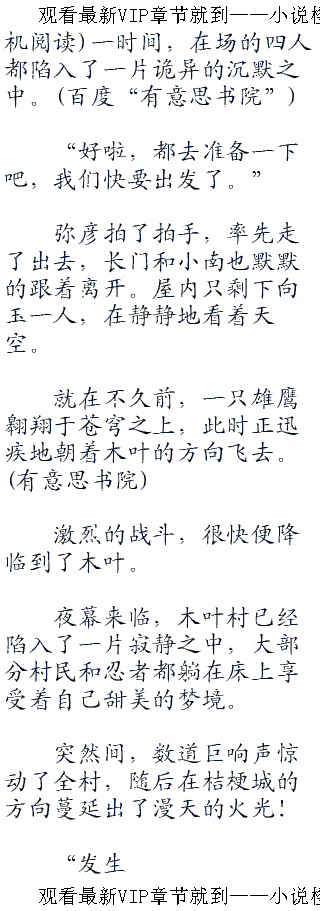 观看最新VIP章节就到——小说检
机阅读)一时间，在场的四人
都陷入了一片诡异的沉默之
中。(百度“有意思书院”)
“好啦，都去准备一下
吧，我们快要出发了。”
弥彦拍了拍手，率先走
了出去，长门和小南也默默
的跟着离开。屋内只剩下向
玉一人，在静静地看着天
空。
就在不久前，一只雄鹰
翱翔于苍穹之上，此时正迅
疾地朝着木叶的方向飞去。
(有意思书院)
激烈的战斗，很快便降
临到了木叶。
夜幕来临，木叶村已经
陷入了一片寂静之中，大部
分村民和忍者都躺在床上享
受着自己甜美的梦境。
突然间，数道巨响声惊
动了全村，随后在桔梗城的
方向蔓延出了漫天的火光！
“发生
观看最新VIP章节就到——小说检